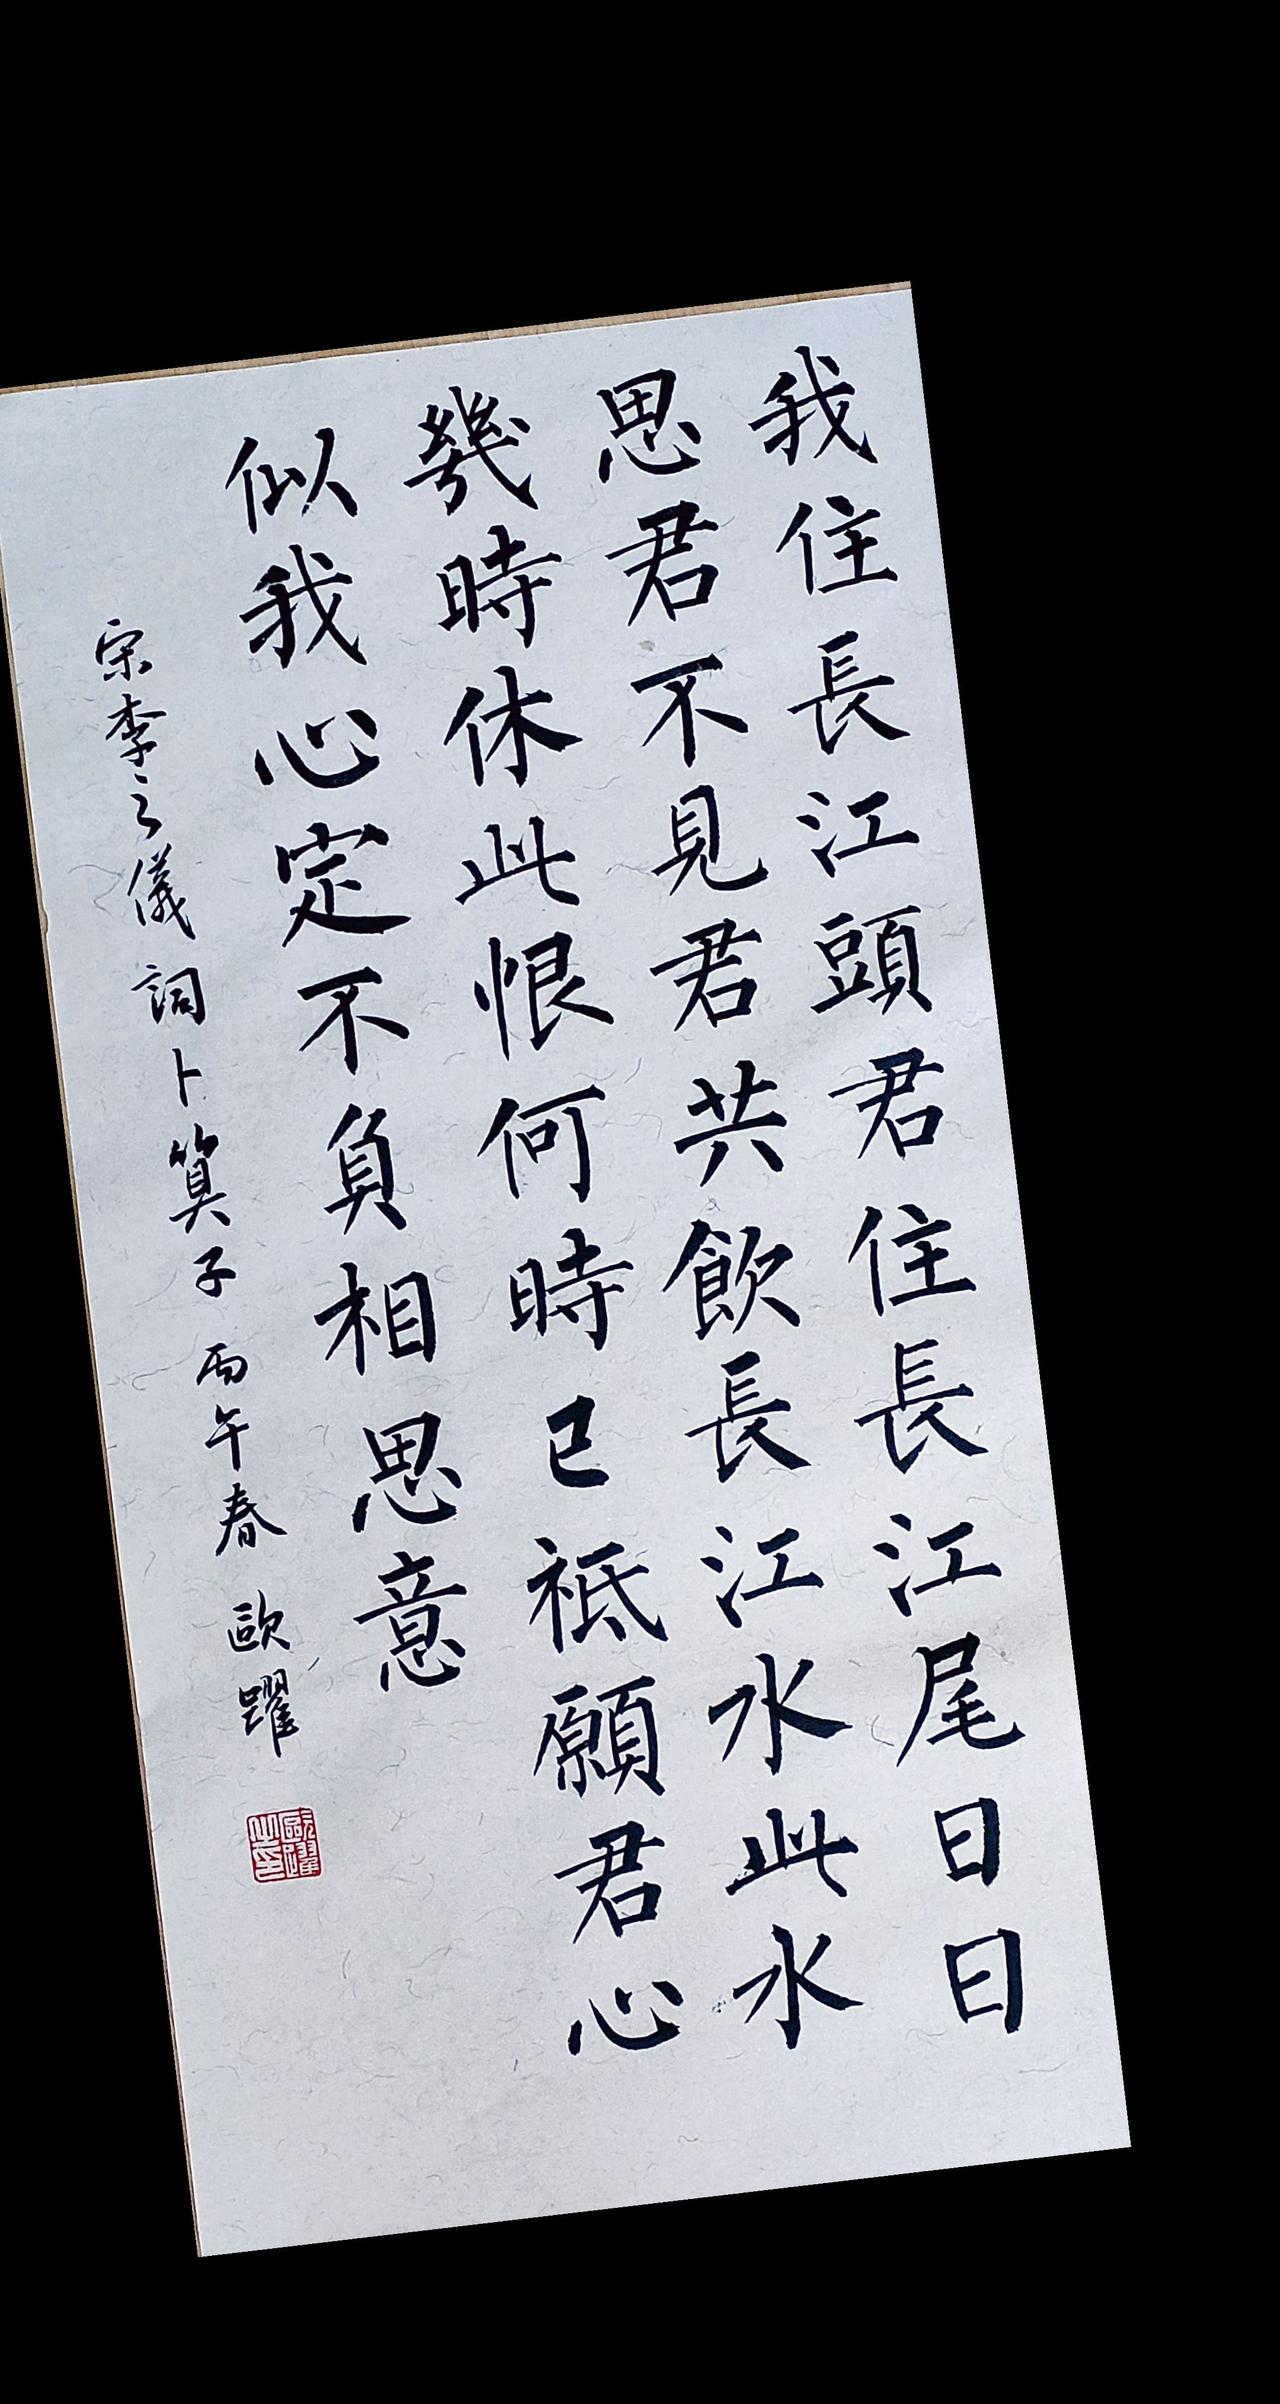 我住長江頭君住長江尾日日
思君不見君共飲長江水此水
幾時休此恨何時已祗願君心
似我心定不負相思意
宋李之儀詞卜算子丙午春歐躍
歐躍之印